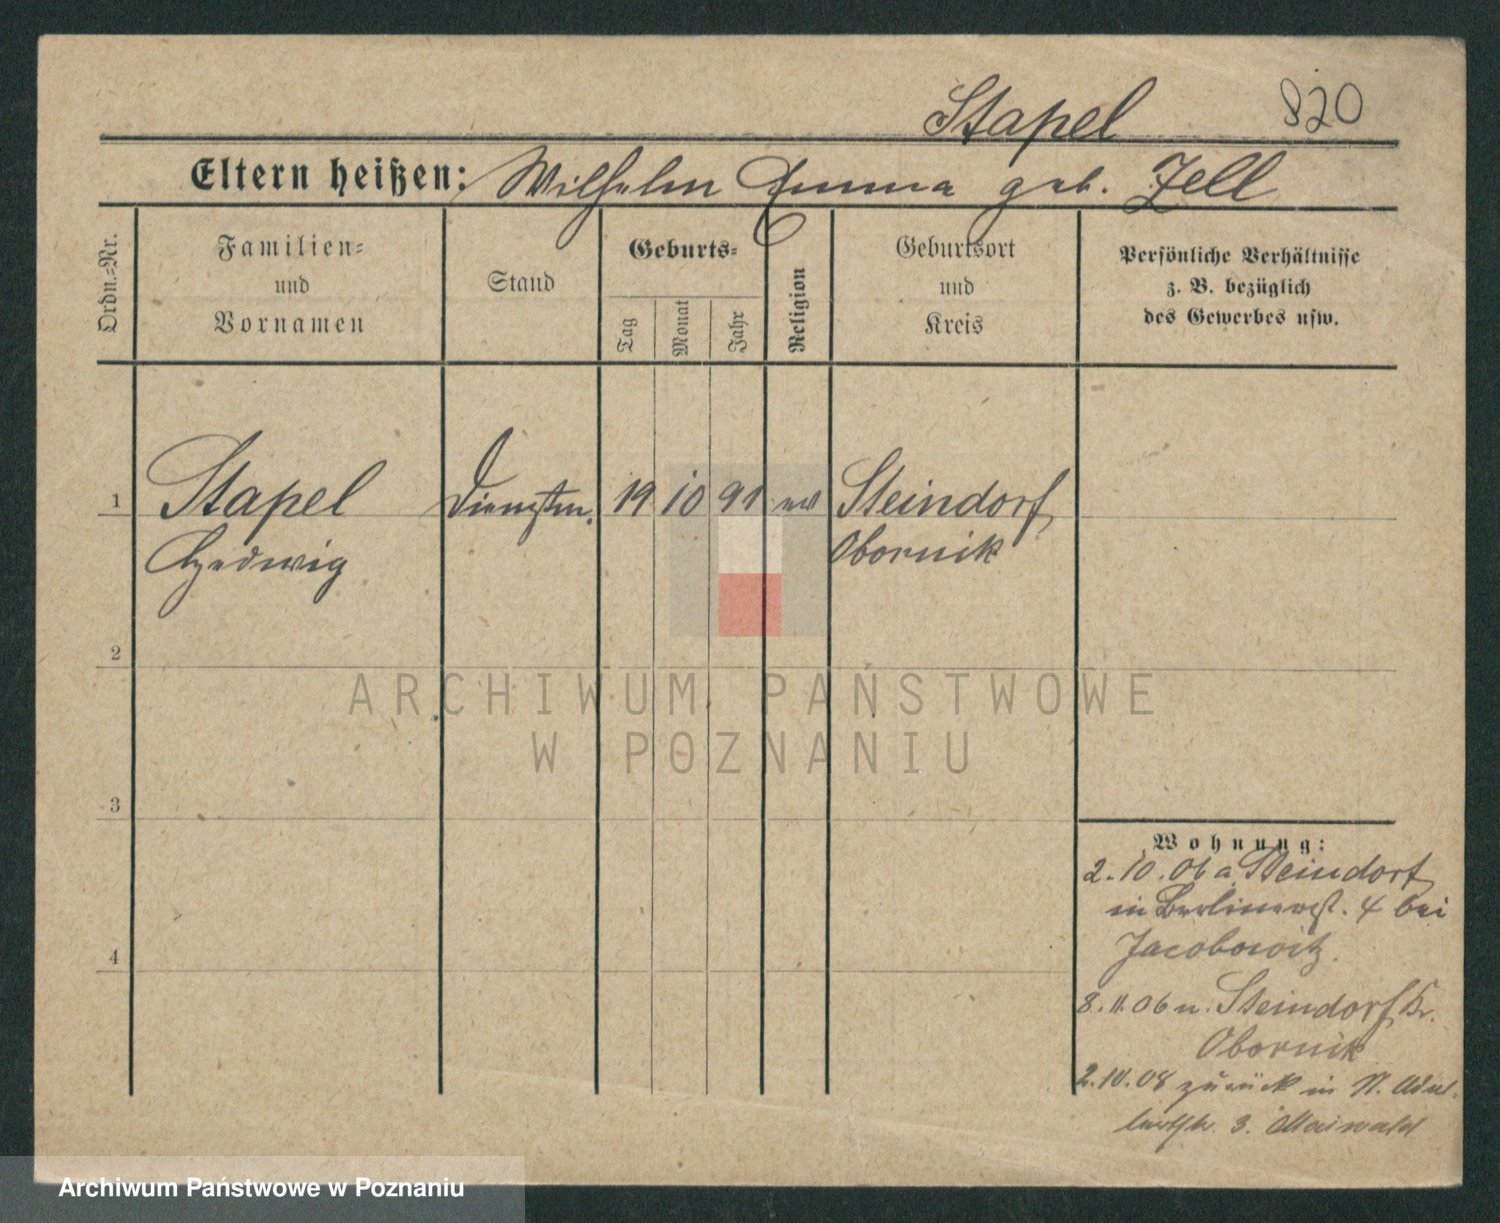 Stapel 820
Eltern heißen: Wilhelm Emma geb. Zell
Ordn.=Nr.
Familien=
und
Vornamen
Stand
Geburts=
Tag
Monat
Jahr
Religion
Geburtsort
und
Kreis
Persönliche Verhältnisse
z. B. bezüglich
des Gewerbes usw.
1 Stapel Dienstm. 19 10 91 ev Steindorf
Hedwig Obornik
2
3
4
Wohnung:
2.10.06 a. Steindorf
in Berlinerst. 4 bei
Jacobowitz.
8.11.06 n. Steindorf Kr.
Obornik
2.10.08 zurück in
3. Maiwald
ARCHIWUM PAŃSTWOWE
W POZNANIU
Archiwum Państwowe w Poznaniu